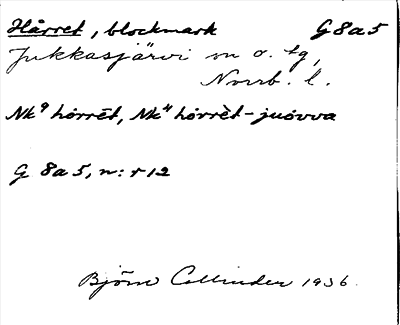 Hårret, blockmark G8a5
Jukkasjärvi sn o. tg,
Norrb. l.
Nk⁹ hǻrrēt, Nk⁴ hǻrrèt-juǒvva
G 8a5, n:r 12
Björn Collinder 1936.